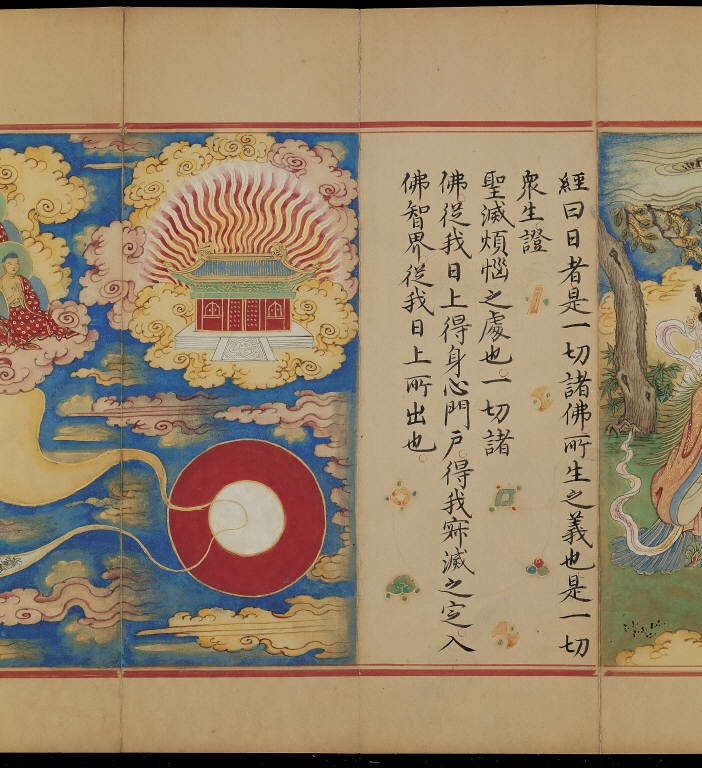 經曰日者是一切諸佛所生之義也是一切
衆生證
聖滅煩惱之處也一切諸
佛從我日上得身心門戶得我寂滅之定入
佛智界從我日上所出也